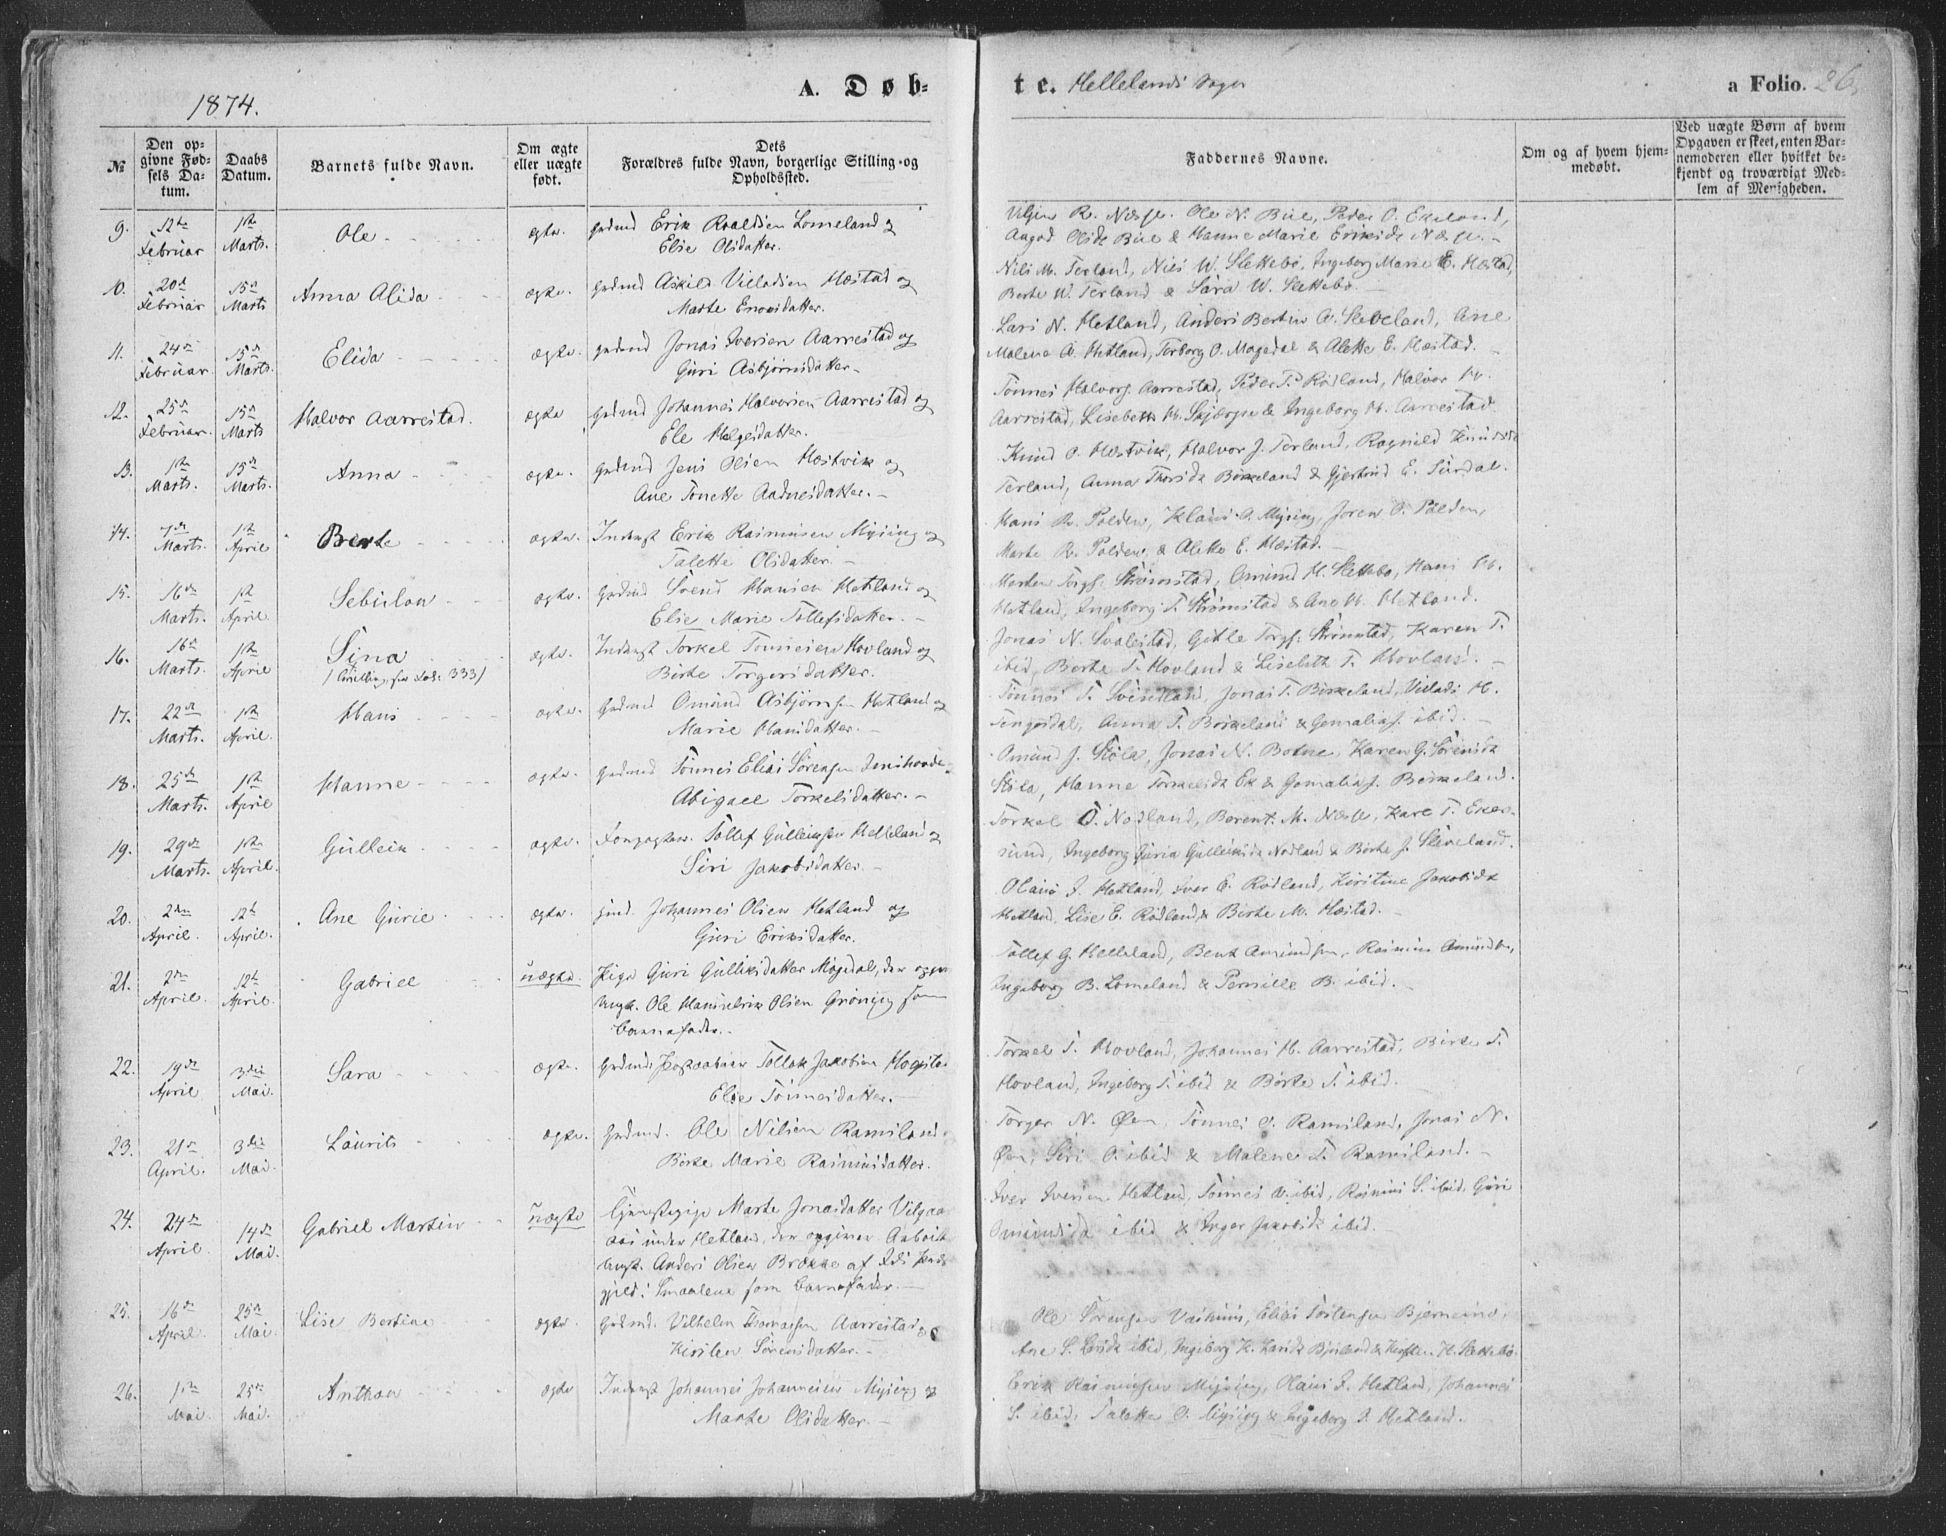 1874.
A. Døb-
te. Hellelands Sogn
a Folio. 26.
№
Den opgivne Fødsels Datum.
Daabs Datum.
Barnets fulde Navn.
Om ægte eller uægte født.
Dets Forældres fulde Navn, borgerlige Stilling og Opholdssted.
Faddernes Navne.
Om og af hvem hjemmedøbt.
Ved uægte Børn af hvem Opgaven er skeet, enten Barnemoderen eller hvilket bekjendt og troværdigt Medlem af Menigheden.
9. 12te Februar 1ste Marts. Ole ægte. Grdmd Erik Roaldsen Lomeland og
Elise Olsdatter.
Aagod Olsdt. Bue & Hanne Marie Eriksdt. Næsse.
10. 20de Februar 15de Marts Anna Alida ægte. Grdmd Askild Villadsen Hæstad og
Marte Enoksdatter.
Nils M. Terland, Nils W. Slettebø, Ingeborg Marie E. Hæstad,
Berte W. Terland & Sara W. Slettebø.
11. 24de Februar 15de Marts. Elida ægte. Grdmd Jonas Iversen Aarrestad og
Guri Asbjørnsdatter.
Lars N. Hetland, Anders Bertin A. Sleveland, Ane
Malene A. Hetland, Torborg O. Mogedal & Alette E. Hæstad.
12. 25de Februar. 15de Marts Halvor Aarrestad. ægte Grdmd Johannes Halvorsen Aarrestad og
Ele Helgesdatter.
Tønnes Halvors. Aarrestad, Peder T. Rødland, Halvor H.
Aarrestad, Lisebeth H. Skjærpe & Ingeborg H. Aarrestad
13. 1ste Marts. 15de Marts. Anna ægte. Grdmd Jens Olsen Hæstvik og
Ane Tonette Aadnesdatter.
Knud O. Hæstvik, Halvor J. Terland, Ragnild Knudsdt.
Terland, Anna Thorsdt. Birkeland & Gjertrud E. Surdal.
14. 7de Marts. 1ste April Berte ægte. Inderst Erik Rasmussen Mysing og
Talette Olsdatter.
Hans R. Polden, Klaus O. Mysing, Joren O. Polden,
Marte R. Polden, & Alette E. Hæstad.
15. 16de Marts. 1ste April. Sebulon ægte. Grdmd Svend Hansen Hetland og
Elise Marie Tollefsdatter.
Morten Torgs. Strømstad, Omund H. Slettebø, Hans H.
Hetland, Ingeborg T. Strømstad & Ane H. Hetland.
16. 16de Marts. 1ste April Sina ægte. Inderst Torkel Tønnesen Hovland og
333)
Berte Torgersdatter.
Jonas N. Svalestad, Gitle Torgs. Strømstad, Karen T.
ibid, Berte T. Hovland & Lisebeth T. Hovland.
17. 22de Marts. 1ste April. Hans ægte. Grdmd Omund Asbjørnsen Hetland og
Marie Hansdatter.
Tønnes T. Svindland, Jonas T. Birkeland, Villads H.
Tengesdal, Anna T. Birkeland & Gomalia J. ibid.
18. 25de Marts. 1ste April Hanne ægte. Grdmd Tønnes Elias Sørensen
Abigael Torkelsdatter.
Omund J. Skåla, Jonas N. Botne, Karen G. Sørensdt.
Skåla, Hanne Torkelsdt. Ek & Gomalia J. Birkeland.
19. 29de Marts. 1ste April. Gulleik ægte. Tollef Gulleiksen Helleland og
Siri Jakobsdatter.
Torkel O. Nodland, Berent M. Næsse, Kare T. Eker-
sund, Ingeborg Guria Gulleiksdt. Nodland & Berte J. Sleveland.
20. 2den April. 12te April. Ane Gurie ægte. Johannes Olsen Hetland og
Guri Eriksdatter.
Olaus J. Hetland, Iver E. Rødland, Kirstine Jakobsdt.
Hetland, Lise E. Rødland, & Berte M. Hæstad.
21. 2den April. 12te April. Gabriel uægte. Pige Guri Gulliksdatter Mogedal, der opgiver
Ungk. Ole Hansinelrik Olsen Grøning som
Barnefader.
Tollef G. Helleland, Bent Amundsen, Rasmus Amundsen,
Ingeborg B. Lomeland & Pernille B. ibid.
22. 19de April 3die Mai. Sara ægte. Tollak Jakobsen
Else Tønnesdatter.
Torkel T. Hovland, Johannes H. Aarrestad, Berte T.
Hovland, Ingeborg T. ibid & Berte T. ibid.
23. 21de April. 3die Mai. Laurits ægte. Grdmd. Ole Nilsen Ramsland
Berte Marie Rasmusdatter.
Torger N. Øen, Tønnes O. Ramsland, Jonas N.
Øen, Siri O. ibid & Malene T. Ramsland.
24. 24de April. 14de Mai. Gabriel Martin uægte Tjenestepige Marte Jonasdatter
under Hetland, der opgiver
Ungk. Anders Olsen af
i Smaalene som Barnefader.
Iver Iversen Hetland, Tønnes ibid, Rasmus S. ibid, Guri
Omundsdt. ibid & Inger Jakobsdt. ibid.
25. 16de April. 25de Mai. Lise Bertine ægte Grdmd. Vilhelm Thomassen Aarrestad og
Kirsten Sørensdatter.
Ole Sørensen Elias
Ane S. ibid, Ingeborg K. & Kirsten H. Slettebø.
26. 1ste Mai. 25de Mai. Anthon ægte Inderst Johannes Johannesen Mysing og
Marte Olsdatter.
Erik Rasmussen Mysing, Olaus J. Hetland, Johannes
S. ibid, Talette O. Mysing & Ingeborg J. Hetland.